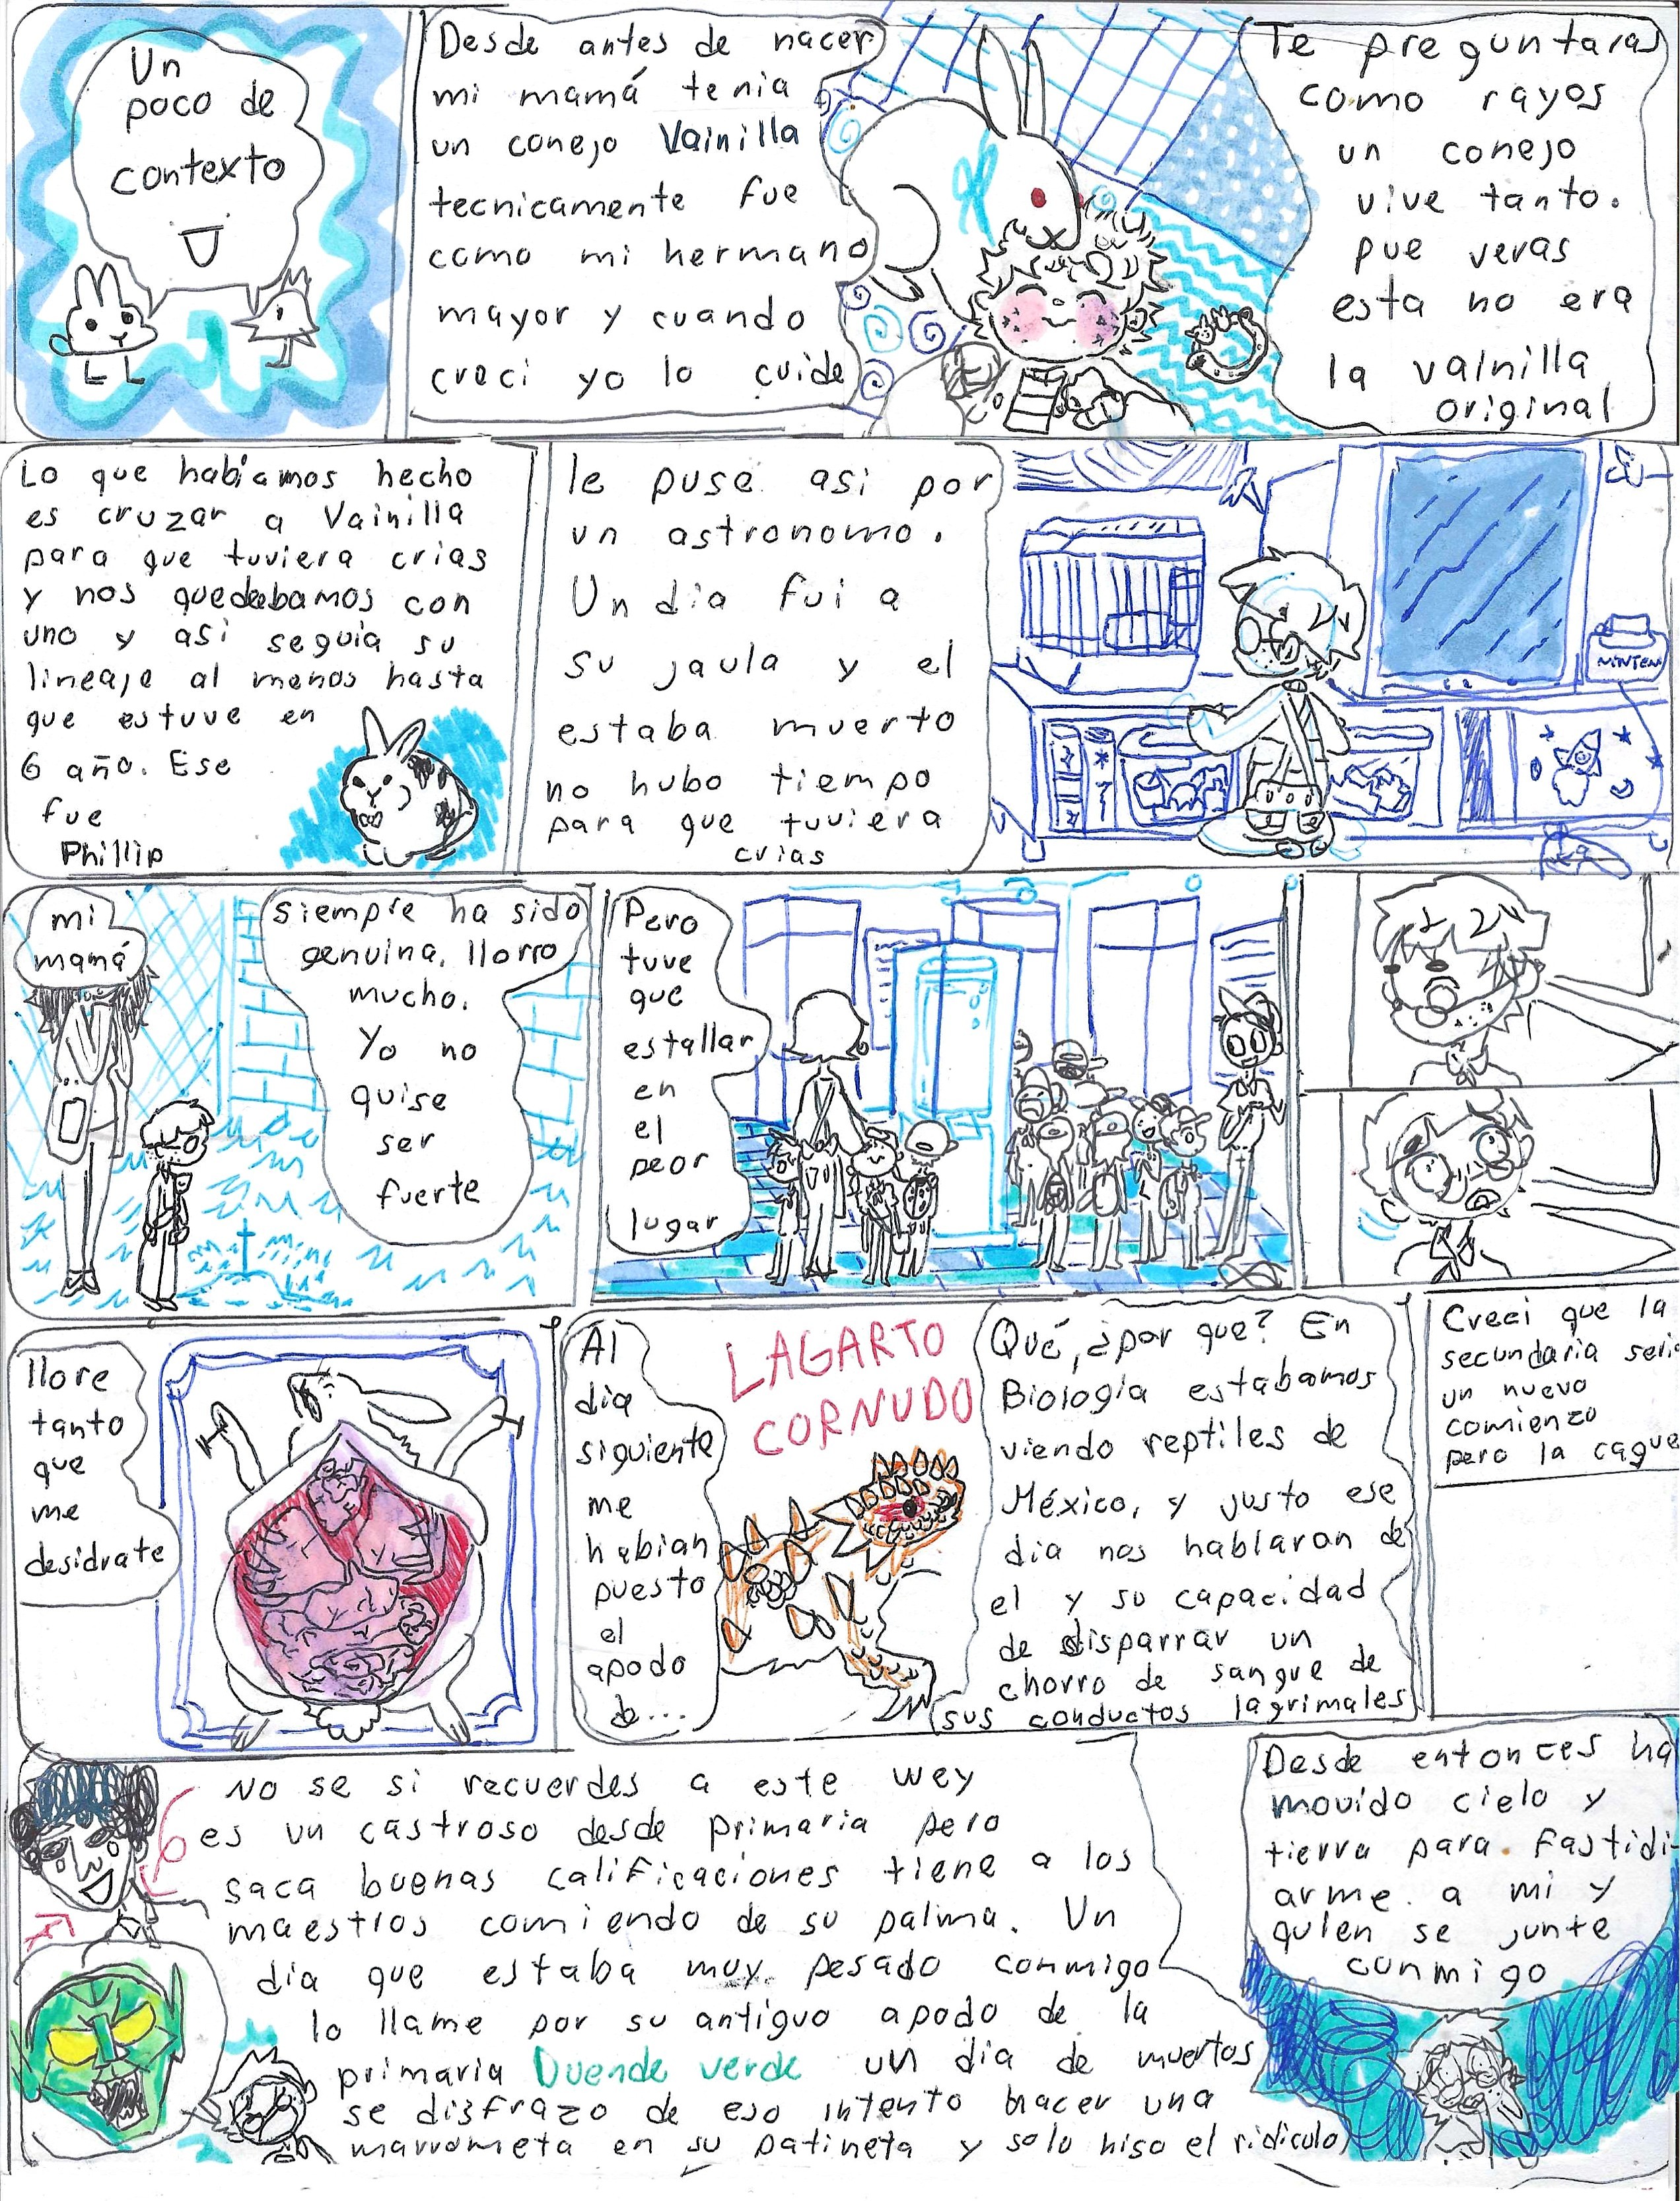 Un
poco de
contexto
Desde antes de nacer
mi mamá tenia
un conejo Vainilla
tecnicamente fue
como mi hermano
mayor y cuando
creci yo lo cuide
Te preguntaras
como rayos
un conejo
vive tanto.
pue veras
esta no era
la vainilla
original
Lo que habiamos hecho
es cruzar a Vainilla
para que tuviera crias
y nos quedabamos con
uno y asi seguia su
lineaje al menos hasta
que estuve en
6 año. Ese
fue
Phillip
le puse asi por
un astronomo.
Un dia fui a
su jaula y el
estaba muerto
no hubo tiempo
para que tuviera
crias
NINTEN
mi
mamá
siempre ha sido
genuina, llorro
mucho.
Yo no
quise
ser
fuerte
Pero
tuve
que
estallar
en
el
peor
lugar
llore
tanto
que
me
desidrate
Al
dia
siguiente
me
habian
puesto
el
apodo
de...
LAGARTO
CORNUDO
Qué, ¿por que? En
Biología estabamos
viendo reptiles de
México, y justo ese
dia nos hablaron de
el y su capacidad
de disparrar un
chorro de sangue de
sus conductos lagrimales
Creci que la
secundaria seria
un nuevo
comienzo
pero la cague
No se si recuerdes a este wey
es un castroso desde primaria pero
saca buenas calificaciones tiene a los
maestros comiendo de su palma. Un
dia que estaba muy pesado conmigo
lo llame por su antiguo apodo de la
primaria Duende verde un dia de muertos
se disfrazo de eso intento hacer una
marrometa en su patineta y solo hiso el ridiculo
Desde entonces ha
movido cielo y
tierra para fastidi-
arme a mi y
quien se junte
conmigo